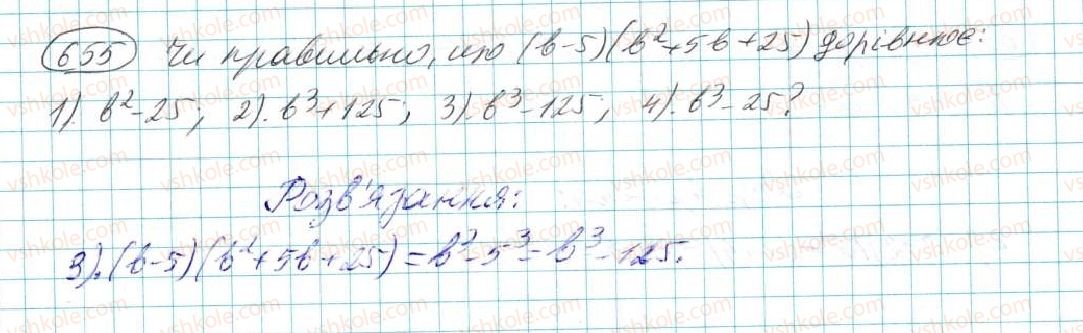 655 Чи правильно, що (b-5)(b²+5b+25) дорівнює:
1). b²-25; 2). b³+125; 3). b³-125; 4). b³-25?
Розв'язання:
3). (b-5)(b²+5b+25)=b³-5³=b³-125.